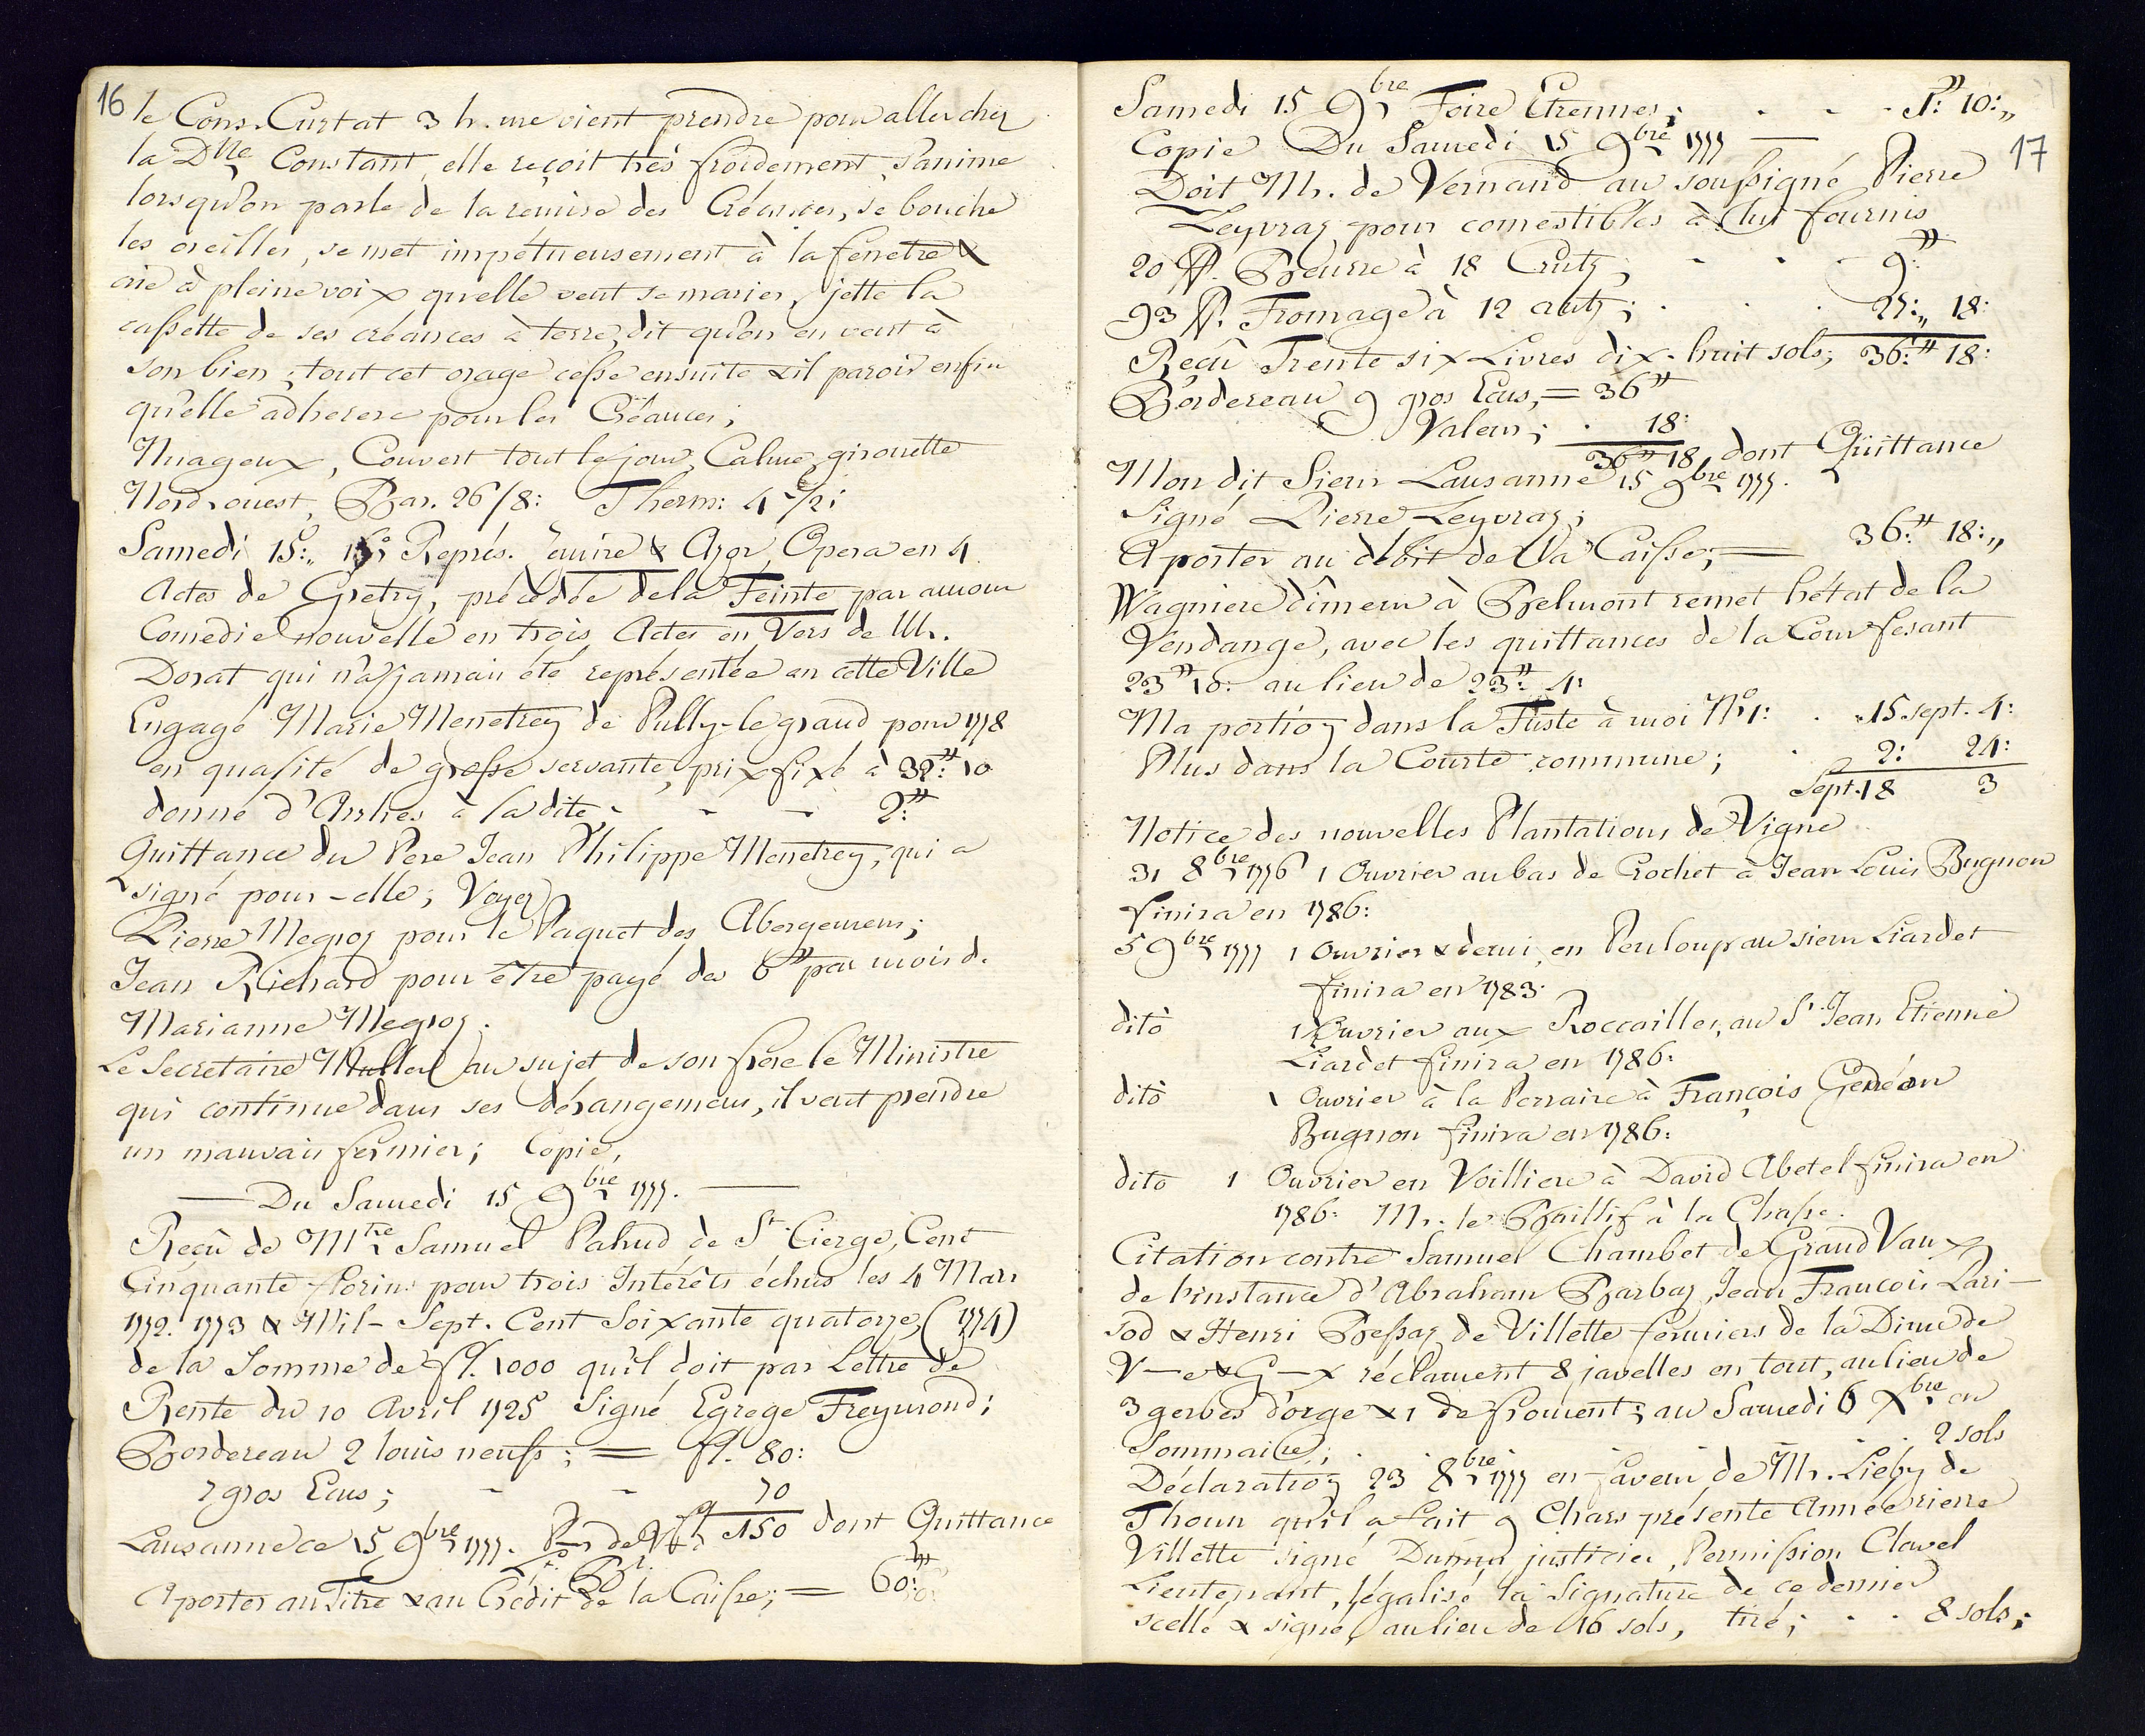 16
le Cons. Curtat 3 h. me vient prendre pour aller chez
la Dlle Constant, elle reçoit très froidement, s'anime
lorsqu'on parle de la remise des Créances, se bouche
les oreilles, se met impétueusement à la fenetre &
crie à pleine voix qu'elle veut se marier, jette la
cassette de ses créances à terre, dit qu'on en veut à
son bien; tout cet orage cesse ensuite & il paroit enfin
qu'elle adherera pour les Créances;
Nuageux, Couvert tout le jour, Calme, girouette
Nord-ouest, Bar. 26/8: Therm: 4 1/2:
Samedi 15:„ Représ. Zemire & Azor, Opera en 4
Actes de Gretry, précédée de la Feinte par amour
Comedie nouvelle en trois Actes en Vers de Mr.
Dorat qui n'a jamais été représentée en cette Ville
Engagé Marie Menetrey de Pully-le grand pour 1778
en qualité de grosse servante, prix fixé à 32:₶ 10
donné d'Arrhes à la dite; - - 2:₶
Quittance du Pere Jean Philippe Menetrey, qui a
signé pour-elle; Voyez
Pierre Megroz pour le Paquet des Abergemens;
Jean Richard pour être payé des 6₶ par mois de
Marianne Megroz.
Le Secretaire Muller au sujet de son frère le Ministre
qui continue dans ses dérangemens, il veut prendre
un mauvais fermier; Copie,
— Du Samedi 15 9bre 1777. —
Reçû de Mtre Samuel Pahud de St. Cierge, Cent
Cinquante florins pour trois Intérêts échus les 4 Mars
1772. 1773 & Mil-Sept. Cent Soixante quatorze, (1774)
de la Somme de fl. 1000 qu'il doit par Lettre de
Rente du 10 Avril 1725 Signé Egrege Freymond;
Bordereau 2 louis neufs; = fl. 80:
7 gros Ecus; - - 70
Lausanne ce 15 9bre 1777. fl 150 dont Quittance
A porter au Titre & au Crédit de la Caisse; = 60:₶
17
Samedi 15 9bre Foire Etrennes; . - - 10:„
Copie Du Samedi 15 9bre 1777 —
Doit Mr. de Vernand au soussigné Pierre
Leyvraz pour comestibles à lui fournis
20 ℔. Beurre à 18 Crutz; - - - 9:₶
93 ℔. Fromage à 12 crutz; . . . 27:„ 18:
Reçû Trente six Livres dix-huit sols; 36:₶ 18:
Bordereau 9 gros Ecus, = 36₶
Valeur; . 18:
36₶ 18 dont Quittance
Mon dit Sieur Lausanne 15 9bre 1777.
Signé Pierre Leyvraz;
A porter au débit de la Caisse; — 36:₶ 18:„
Wagniere dîmeur à Belmont remet l'état de la
Vendange, avec les quittances de la Cour fesant
23₶ 10: au lieu de 23:₶ 4:
Ma portion dans la Fuste à moi No 1: . . 15 sept. 4:
Plus dans la Courte commune; . 2: 24:
Sept. 18 3
Notice des nouvelles Plantations de Vigne
31 8bre 1776 1 Ouvrier au bas de Crochet à Jean Louis Bugnon
finira en 1786:
5 9bre 1777 1 Ouvrier & demi, en Penloup au sieur Liardet
finira en 1783.
dito 1 Ouvrier aux Roccailles, au Sr. Jean Etienne
Liardet finira en 1786:
dito 1 Ouvrier à la Perraire à François Gedéon
Bugnon finira en 1786:
dito 1 Ouvrier en Voilliere à David Abetel finira en
1786: Mr. le Baillif à la Chasse.
Citation contre Samuel Chambet de Grand Vaux
de l'instance d'Abraham Barbaz, Jean François Pari-
sod & Henri Bessaz de Villette fermiers de la Dime de
V—e & G—x réclament 8 javelles en tout, au lieu de
3 gerbes d'orge & 1 de froment; au Samedi 6 Xbre en
Sommaire; . . . . 2 sols
Déclaration 23 8bre 1777 en faveur de Mr. Lieby de
Thoun qu'il a fait 9 Chars présente Année rierre
Villette signé justicier, Permission Clavel
Lieutenant, légalisé la Signature de ce dernier
scellé & signé, au lieu de 16 sols, tiré; . . . 8 sols;